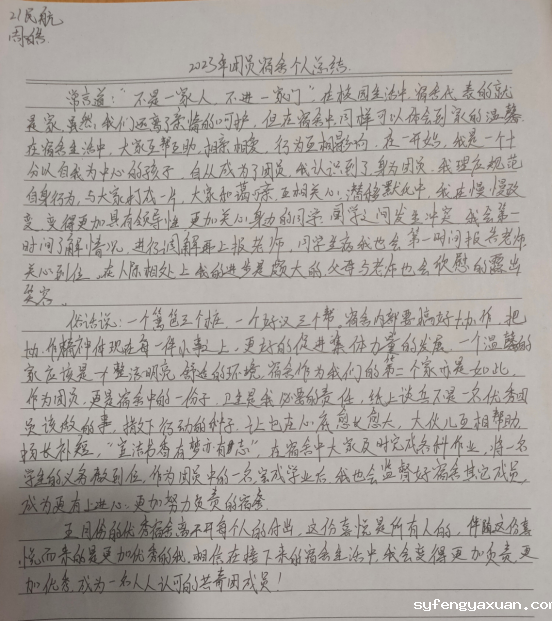 21民航
周皓
2023年团员宿舍个人总结
常言道：“不是一家人，不进一家门”，在校园生活中，宿舍代表的就
是家，虽然我们远离了亲情的呵护，但在宿舍中同样可以体会到家的温馨
在宿舍生活中，大家互帮互助，相亲相爱，行为互相影响，在一开始，我是一个十
分以自我为中心的孩子，自从成为了团员，我认识到了身为团员，我理应规范
自身行为，与大家打成一片，大家和蔼可亲，互相关心，潜移默化中，我在慢慢改
变，变得更加具有领导性，更加关心身边的同学，同学之间发生冲突，我会第一
时间了解情况，进行调解再上报老师，同学生病我也会第一时间报告老师
关心到位，在人际相处上我的进步是颇大的，父母与老师也会欣慰的露出
笑容。
俗话说：一个篱笆三个桩，一个好汉三个帮，宿舍内部要搞好协作，把
协作精神体现在每一件小事上，更好的促进集体力量的发展，一个温馨的
家应该是一个整洁明亮，舒适的环境，宿舍作为我们的第二个家亦是如此，
作为团员，更是宿舍中的一份子，卫生是我必要的责任，纸上谈兵不是一名优秀团
员该做的事，播下行动的种子，让他在心底愈长愈大，大伙儿互相帮助
扬长补短，在宿舍中大家及时完成各科作业，将一名
学生的义务做到位，作为团员中的一名，完成学业后，我也会监督好宿舍其它成员，
成为更有上进心，更加努力负责的宿舍。
五月份的优秀宿舍离不开每个人的付出，这份喜悦是所有人的，伴随这份喜
悦而来的是更加优秀的我，相信在接下来的宿舍生活中，我会变得更加负责，更
加优秀，成为一名人人认可的共青团成员！
syfengyaxuan.com